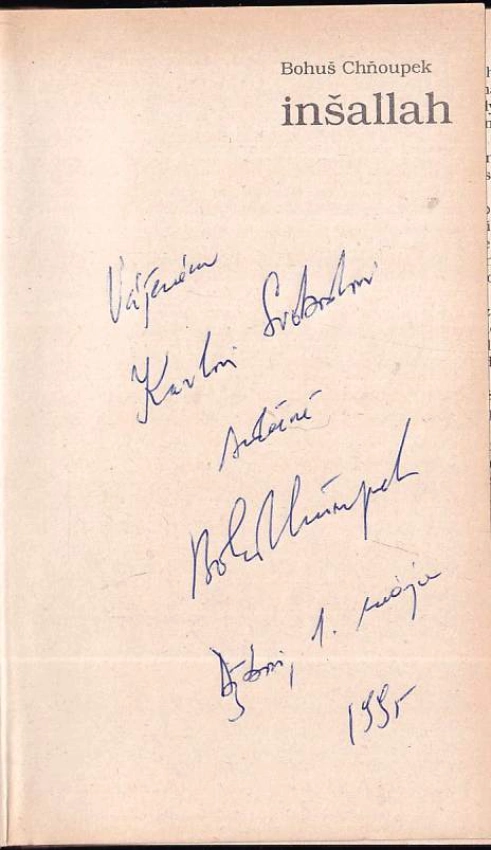 Bohuš Chňoupek
inšallah
Váženému
Karlovi Svobodovi
srdečně
Bohuš Chňoupek
1. mája
1995